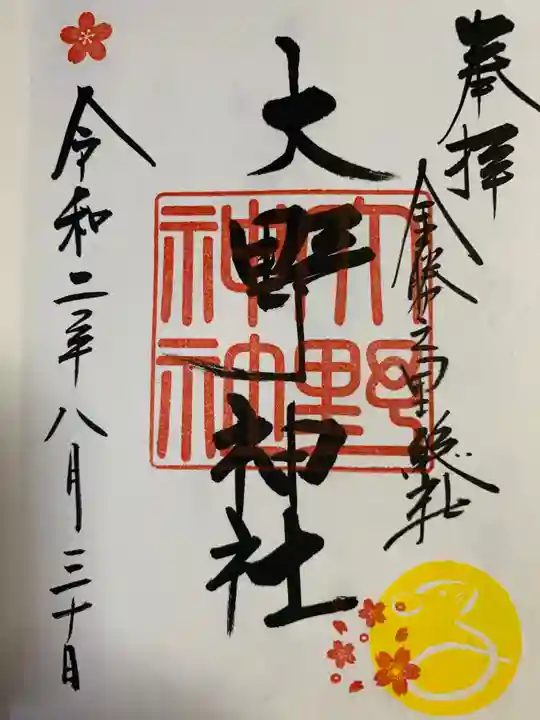 奉拝
金勝之里総社
大野神社
大野
神社
令和二年八月三十日